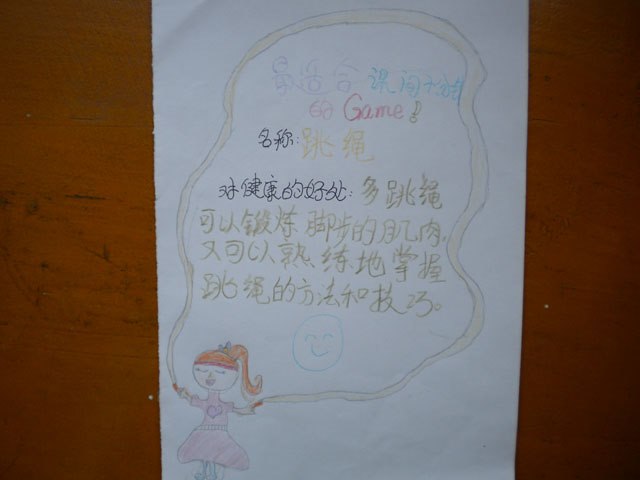 最适合课间十分钟
的 Game!
名称:跳绳
对健康的好处:多跳绳
可以锻炼脚步的肌肉,
又可以熟练地掌握
跳绳的方法和技巧。